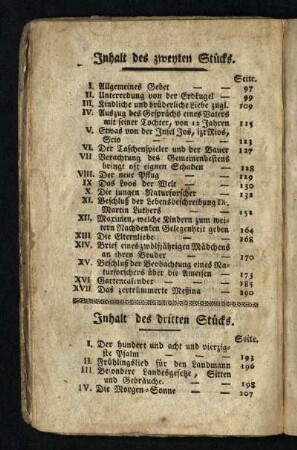 Inhalt des zweyten Stücks.
Seite.
I. Allgemeines Gebet — — 97
II. Unterredung von der Erdkugel — 99
III. Kindliche und brüderliche Liebe zugl. 109
IV. Auszug des Gesprächs eines Vaters
mit seiner Tochter, von 12 Jahren 115
V. Etwas von der Insel Jos, izt Nios,
Scio — — — 119
VI. Der Taschenspieler und der Bauer 127
VII Verachtung des Gemeinenbestens
bringt oft eignen Schaden — 128
VIII. Der neue Pflug — — 129
IX Das Loos der Welt — — 130
X. Die jungen Naturforscher — 138
XI. Beschluß der Lebensbeschreibung D.
Martin Luthers — — 151
XII. Maximen, welche Kindern zum wei-
tern Nachdenken Gelegenheit geben 164
XIII Die Elternliebe — — 168
XIV. Brief eines zwölfjährigen Mädchens
an ihren Bruder — — 169
XV. Beschluß der Beobachtung eines Na-
turforschers über die Ameisen — 173
XVI Gartencalender — — 185
XVII Das zertrümmerte Messina — 190
Inhalt des dritten Stücks.
Seite.
I. Der hundert und acht und vierzig-
ste Psalm — — 193
II. Frühlingslied für den Landmann 196
III Besondre Landesgesetze, Sitten
und Gebräuche. — — 198
IV. Die Morgen-Sonne — — 207